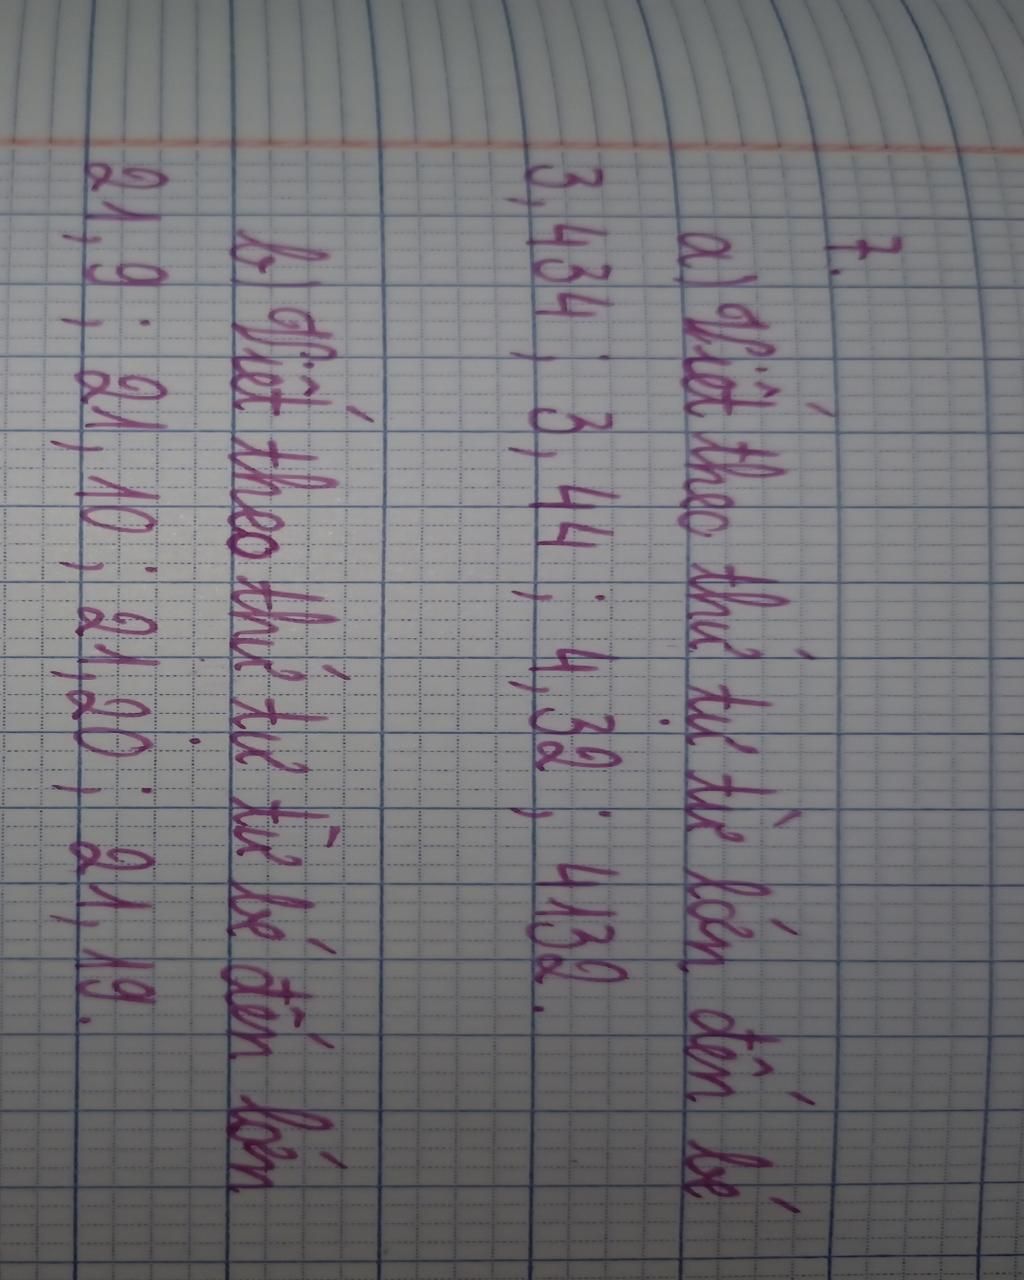 7.
a) Viết theo thứ tự từ lớn đến bé
3,434 ; 3,44 ; 4,32 ; 4132.
b) Viết theo thứ tự từ bé đến lớn
21,9 ; 21,10 ; 21,20 ; 21,19.